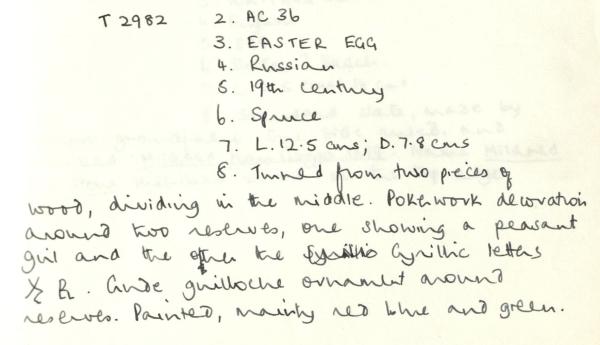 T 2982 2. AC 36
3. EASTER EGG
4. Russian
5. 19th century
6. Spruce
7. L. 12.5 cms; D. 7.8 cms
8. Turned from two pieces of
wood, dividing in the middle. Pokerwork decoration
around two reserves, one showing a peasant
girl and the other the Cyrillic letters
Crude guilloche ornament around
reserves. Painted, mainly red blue and green.